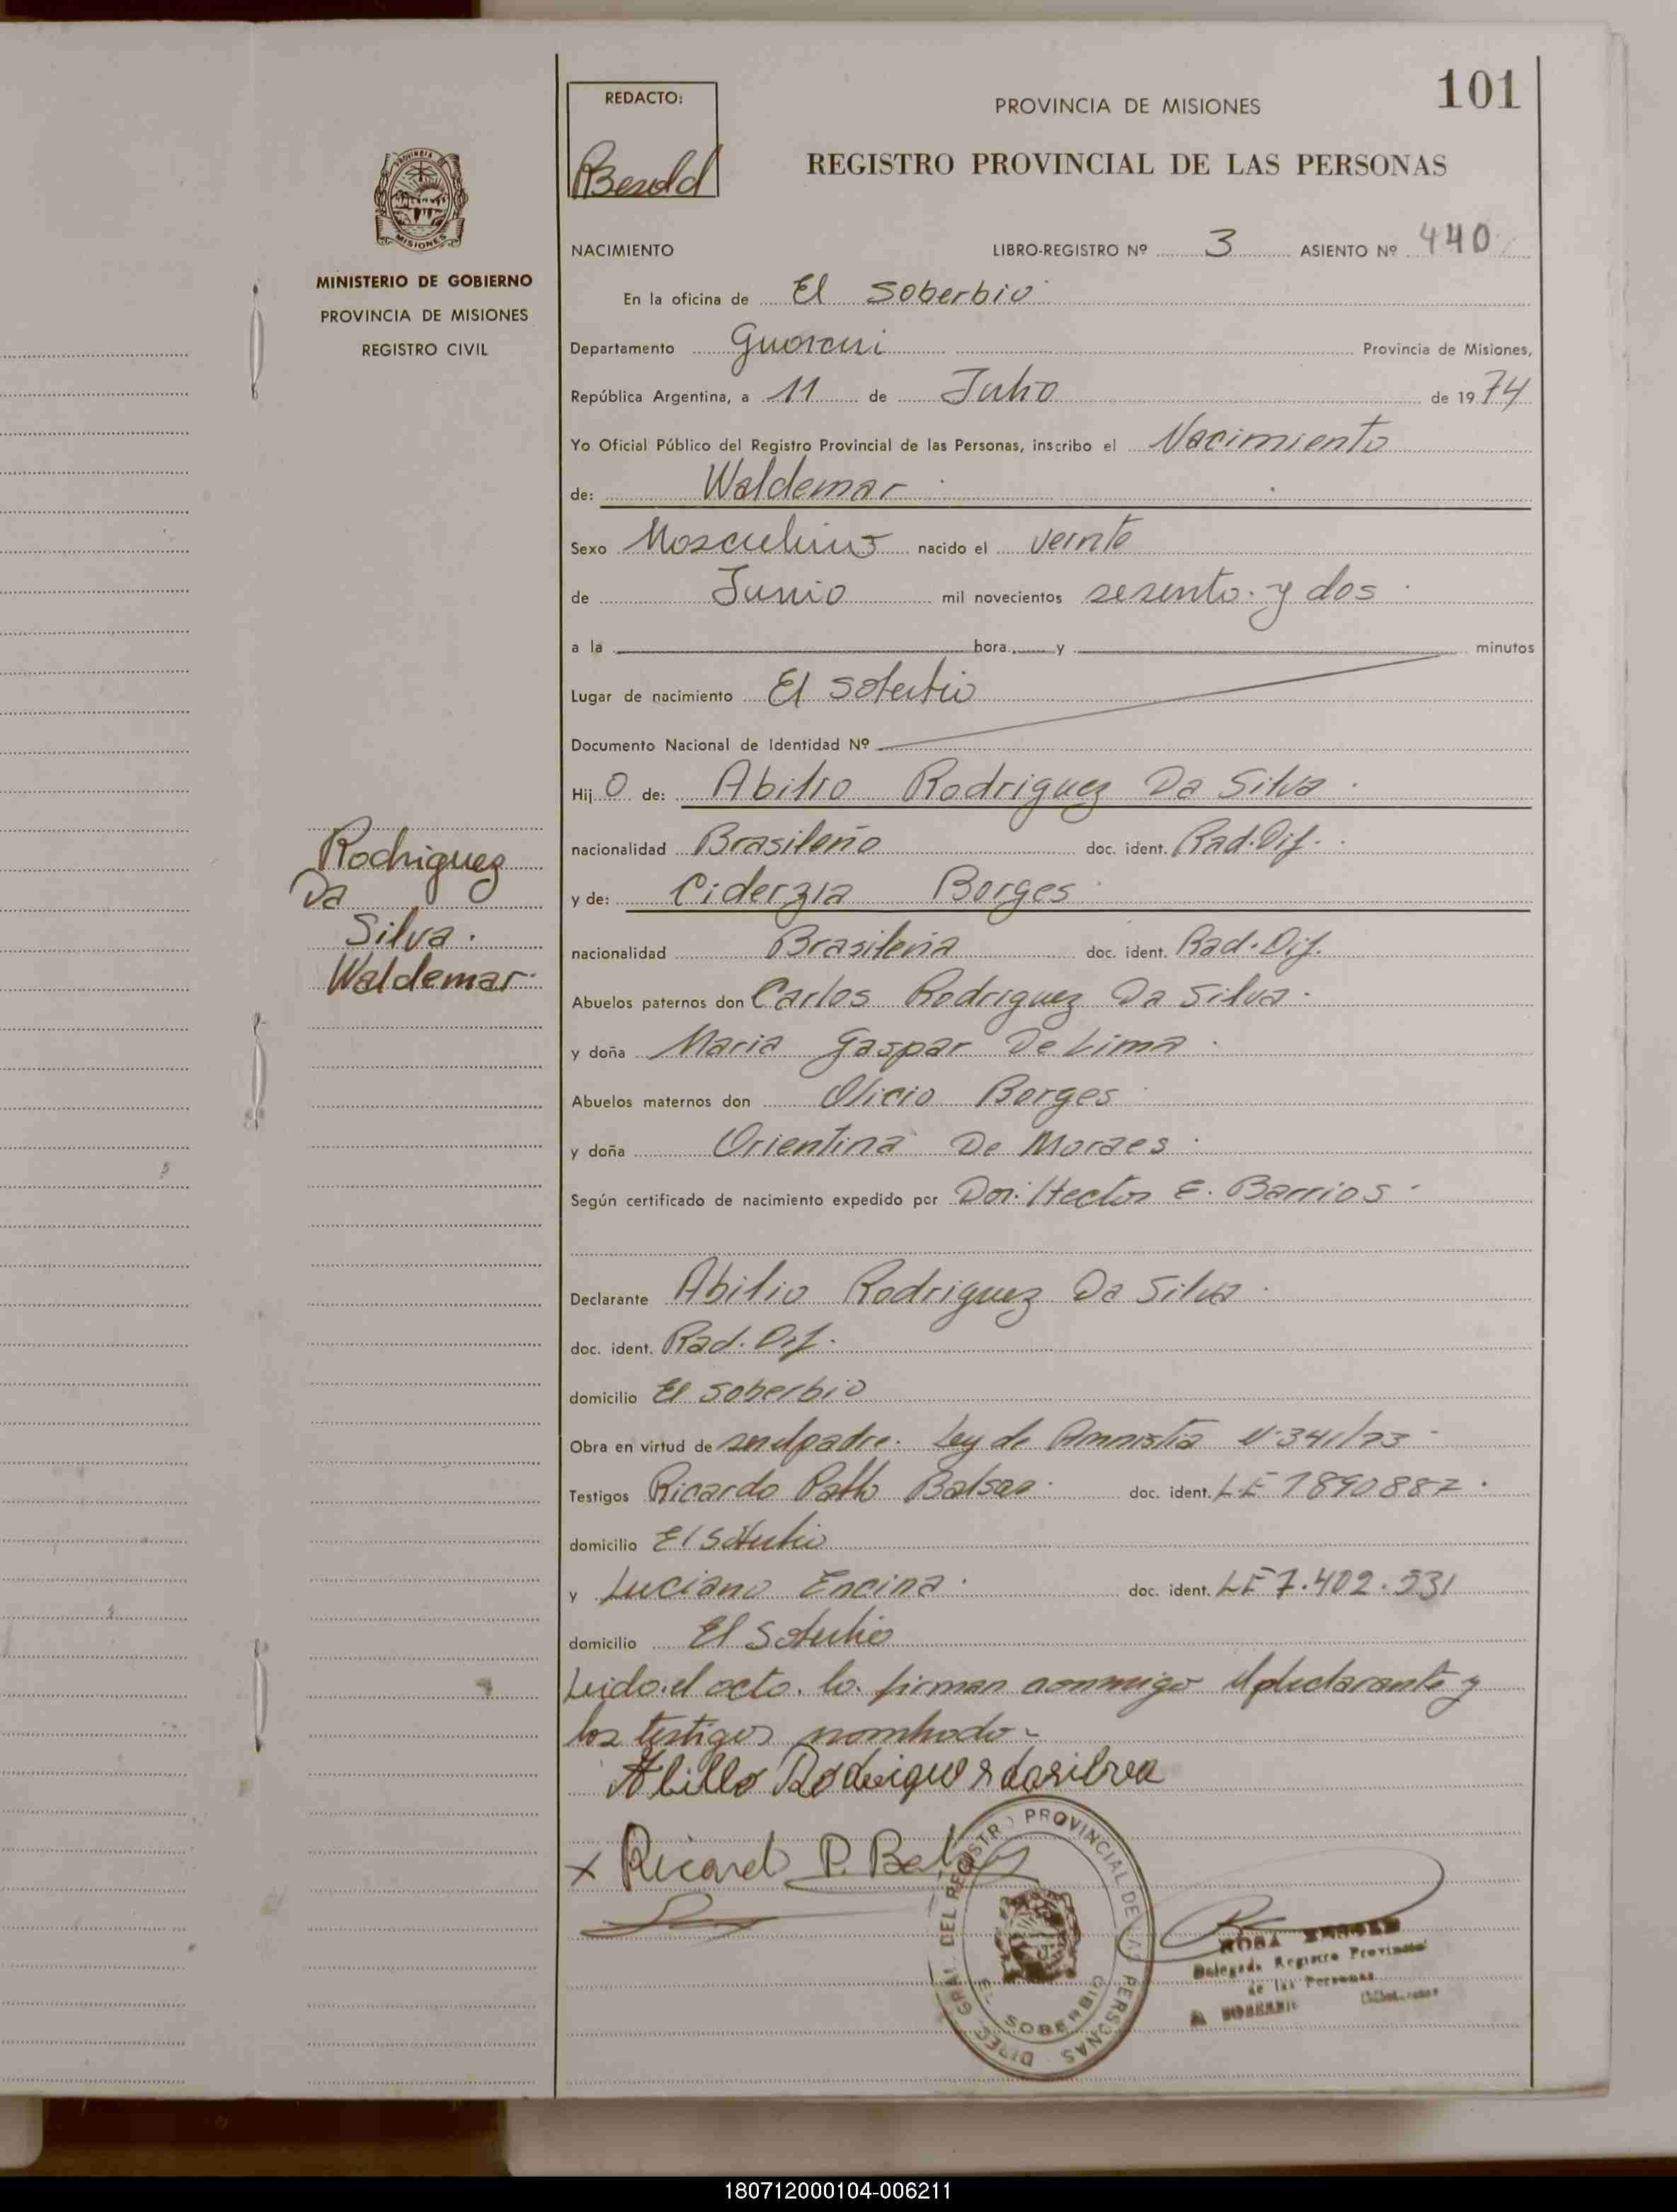 101
REDACTO:
PROVINCIA DE MISIONES
REGISTRO PROVINCIAL DE LAS PERSONAS
PROVINCIA DE
MISIONES
MINISTERIO DE GOBIERNO
PROVINCIA DE MISIONES
REGISTRO CIVIL
NACIMIENTO LIBRO-REGISTRO Nº 3 ASIENTO Nº 440
En la oficina de El Soberbio
Departamento Guarani Provincia de Misiones,
República Argentina, a 11 de Julio de 1974
Yo Oficial Público del Registro Provincial de las Personas, inscribo el Nacimiento
de: Waldemar
Sexo Masculino nacido el veinte
de Junio mil novecientos sesenta y dos
a la hora y minutos
Lugar de nacimiento El Soberbio
Documento Nacional de Identidad Nº
Hij O de: Abilio Rodriguez Da Silva
nacionalidad Brasileño doc. ident. Rad. Dif.
y de: Ciderzia Borges
nacionalidad Brasileña doc. ident. Rad. Dif.
Rodriguez
Da
Silva.
Waldemar
Abuelos paternos don Carlos Rodriguez Da Silva.
y doña Maria Gaspar De Lima
Abuelos maternos don Olicio Borges
y doña Orientina De Moraes
Según certificado de nacimiento expedido por Hector E. Barrios
Declarante Abilio Rodriguez Da Silva
doc. ident. Rad. Dif.
domicilio El Soberbio
Obra en virtud de ser el padre. Ley de Amnistia N. 341/73
Testigos Ricardo doc. ident. L.E 7890882
domicilio El Soberbio
y Luciano Encina doc. ident. LE 7.402.531
domicilio El Soberbio
Leido el acto lo firman conmigo el declarante y
los testigos nombrado
Abilio Rodrigues dasilva
x Ricard P.
DIREC. GRAL. DEL REGISTRO PROVINCIAL DE LAS PERSONAS
EL SOBERBIO
ROSA
Delegada Registro Provincial
de las Personas
180712000104-006211